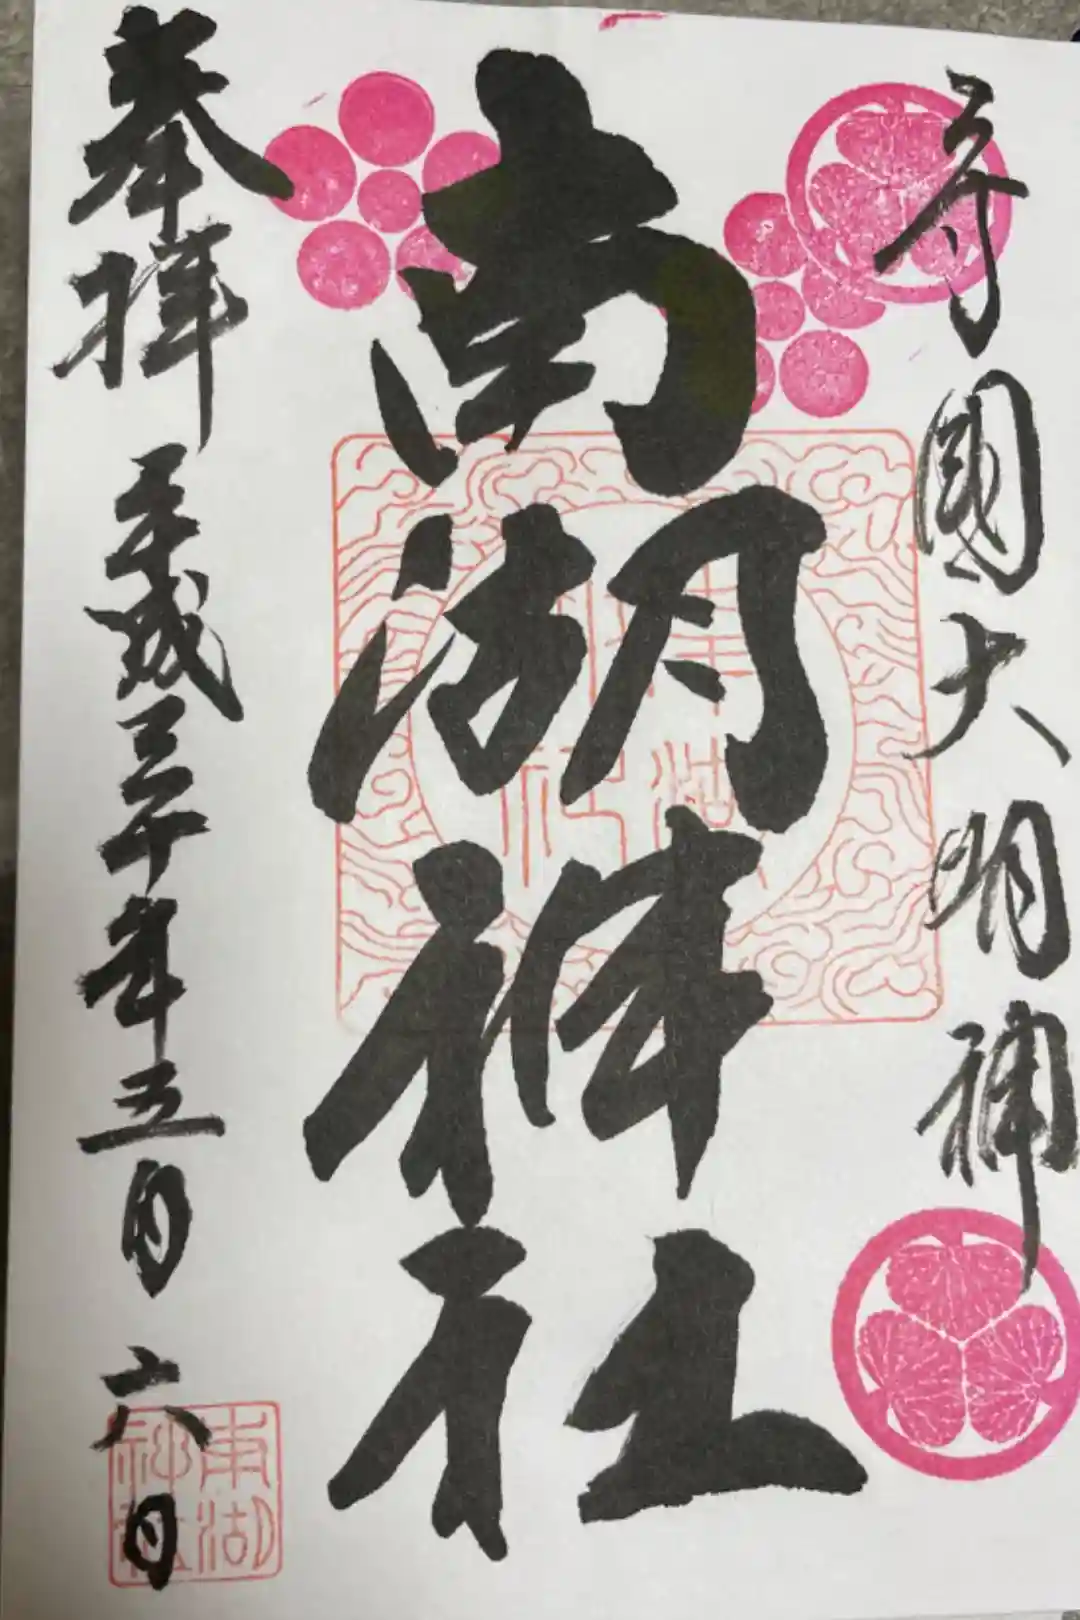 守國大明神
南湖神社
奉拝
平成三十年五月六日
南湖
神社